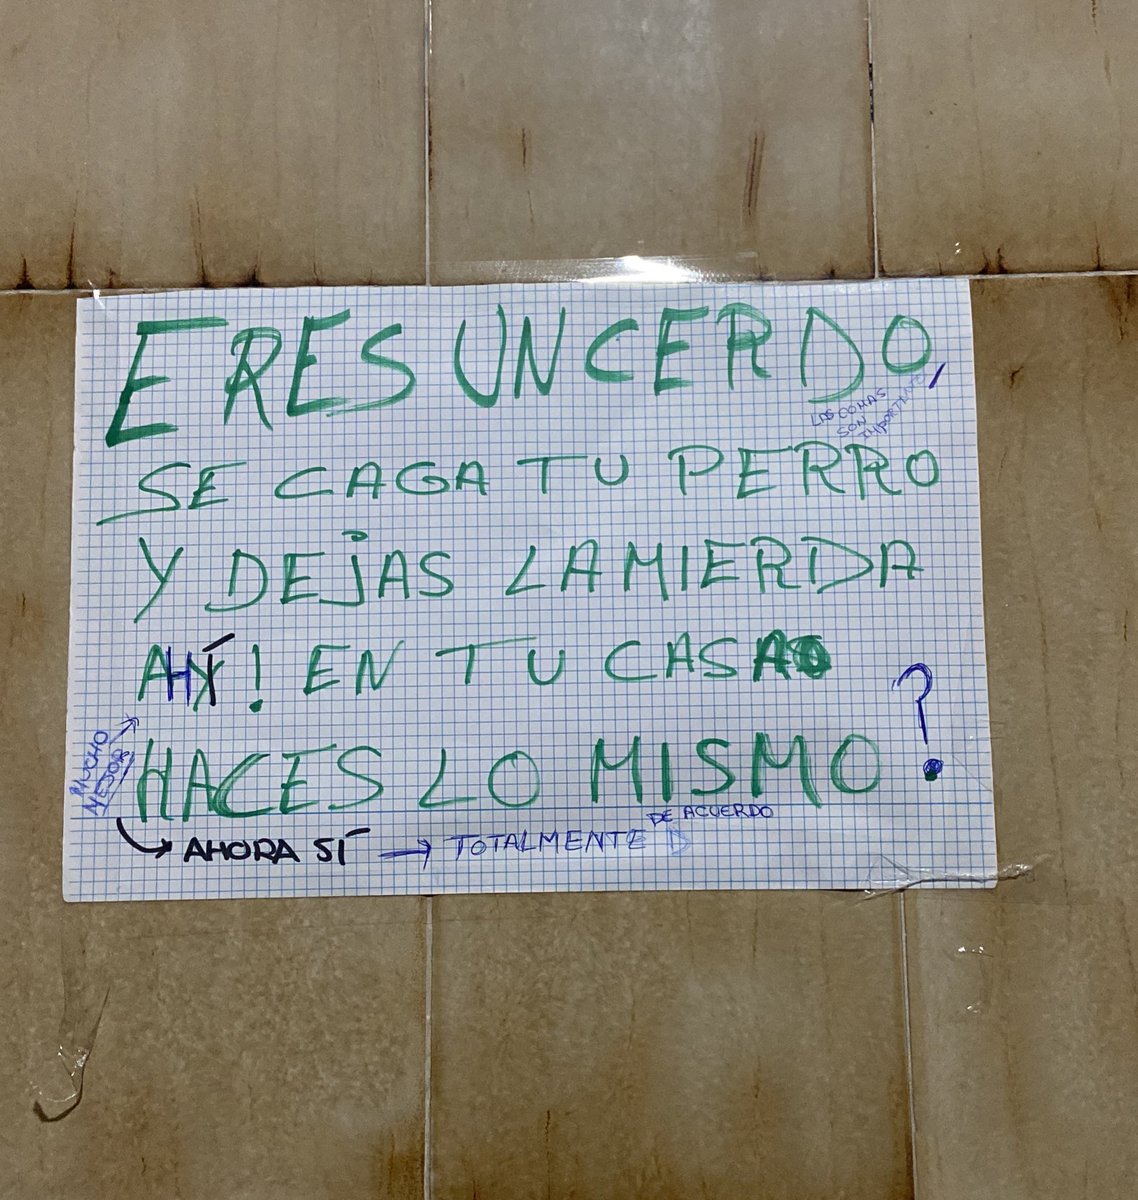 ERES UN CERDO,
LAS COMAS
SON
IMPORTANTES
SE CAGA TU PERRO
Y DEJAS LA MIERDA
AHÍ! EN TU CASA
HACES LO MISMO?
MUCHO
MEJOR
AHORA SÍ → TOTALMENTE D
DE ACUERDO